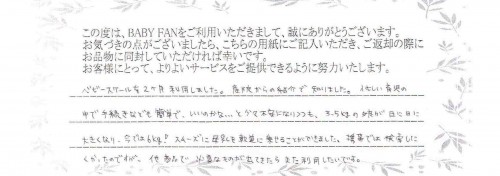 この度は、BABY FANをご利用いただきまして、誠にありがとうございます。
お気づきの点がございましたら、こちらの用紙にご記入いただき、ご返却の際に
お品物に同封していただければ幸いです。
お客様にとって、よりよいサービスをご提供できるように努力いたします。
ベビースケールを2ヶ月利用しました。産院からの紹介で知りました。忙しい育児の
中で手続きなども簡単で、いいのかな…と少々不安になりつつも、2.5kgの娘が日に日に
大きくなり、今では6kg!! スムーズに母乳を軌道に乗せることができました。携帯では検索しに
くかったのですが、他商品で必要なものが出てきたらまた利用したいです。